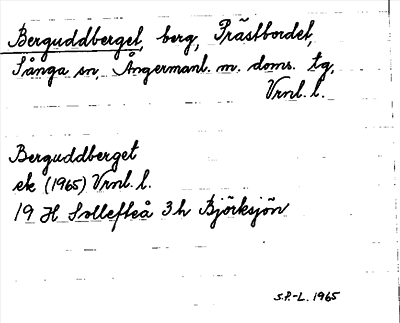 Berguddberget, berg, Prästbordet,
Sånga sn, Ångermanl. m. doms. tg,
Vrnl. l.
Berguddberget
ek (1965) Vrnl. l.
19 H Sollefteå 3 h Björksjön
S.P.-L. 1965